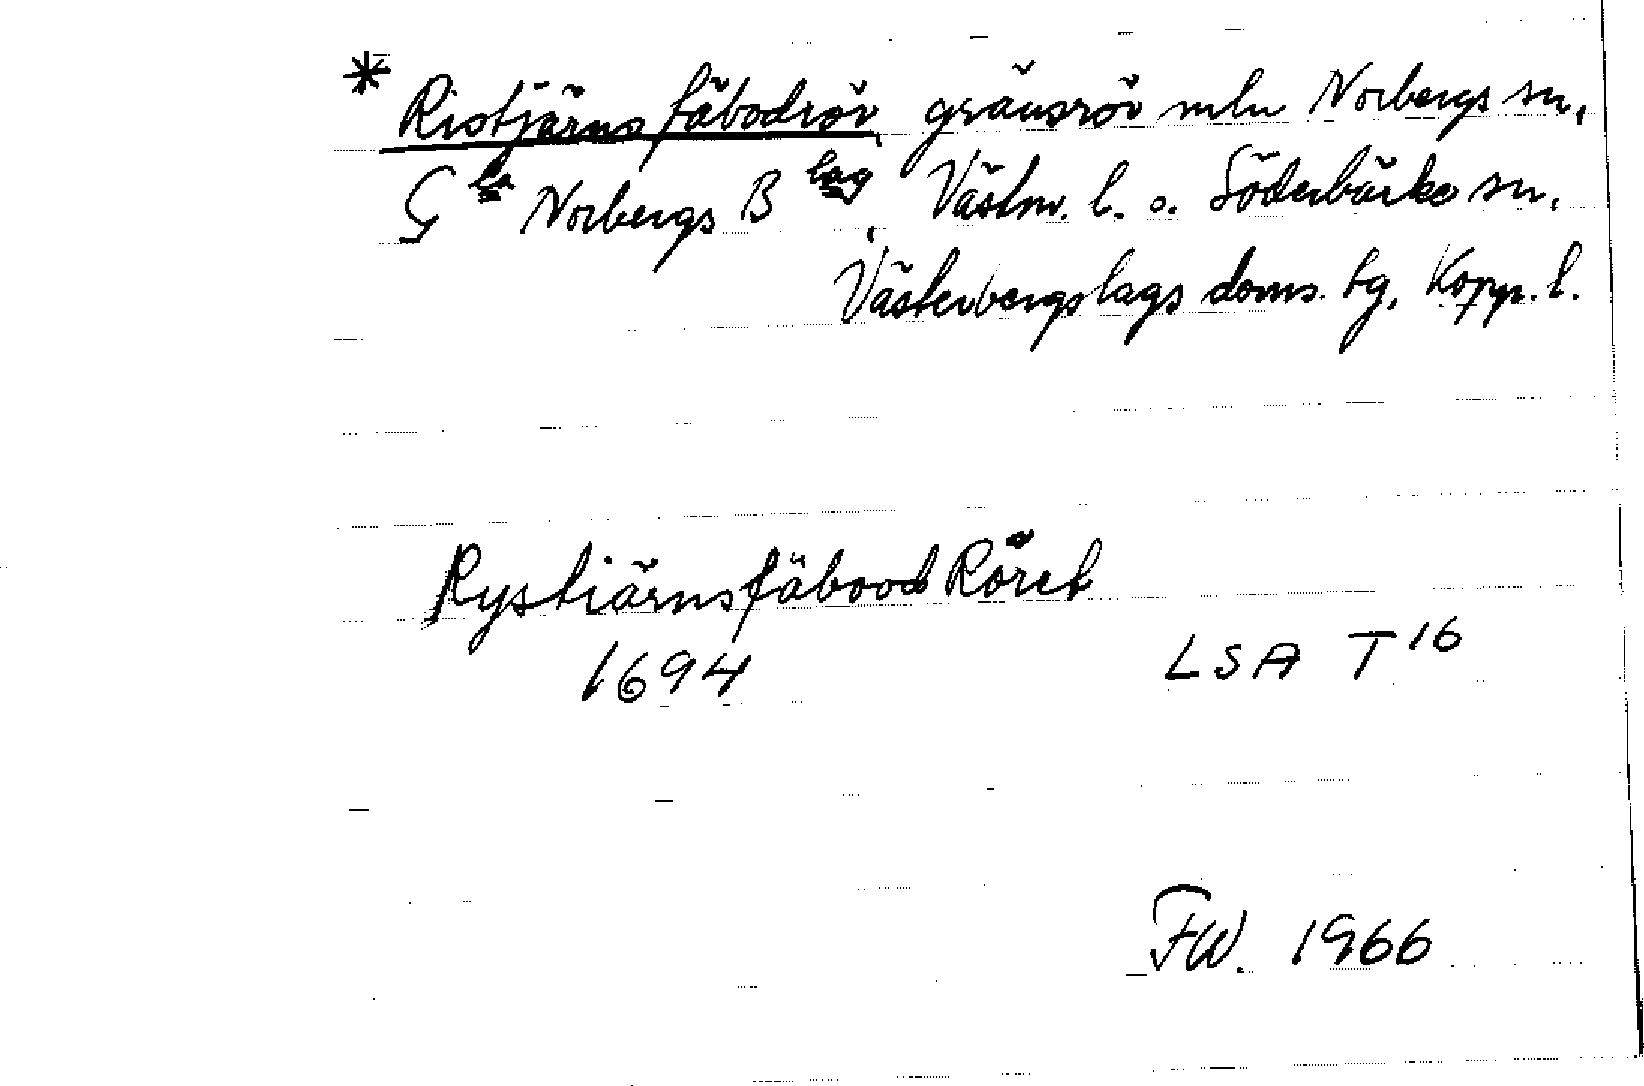 * Ristjärns fäbodrör, gränsrör mln Norbergs sn,
Gla Norbergs Blag, Västm. l. o. Söderbärke sn,
Västerbergslags doms. tg, Kopp. l.
Rystiärnsfäbood Röret
1694 LSA T16
FW. 1966